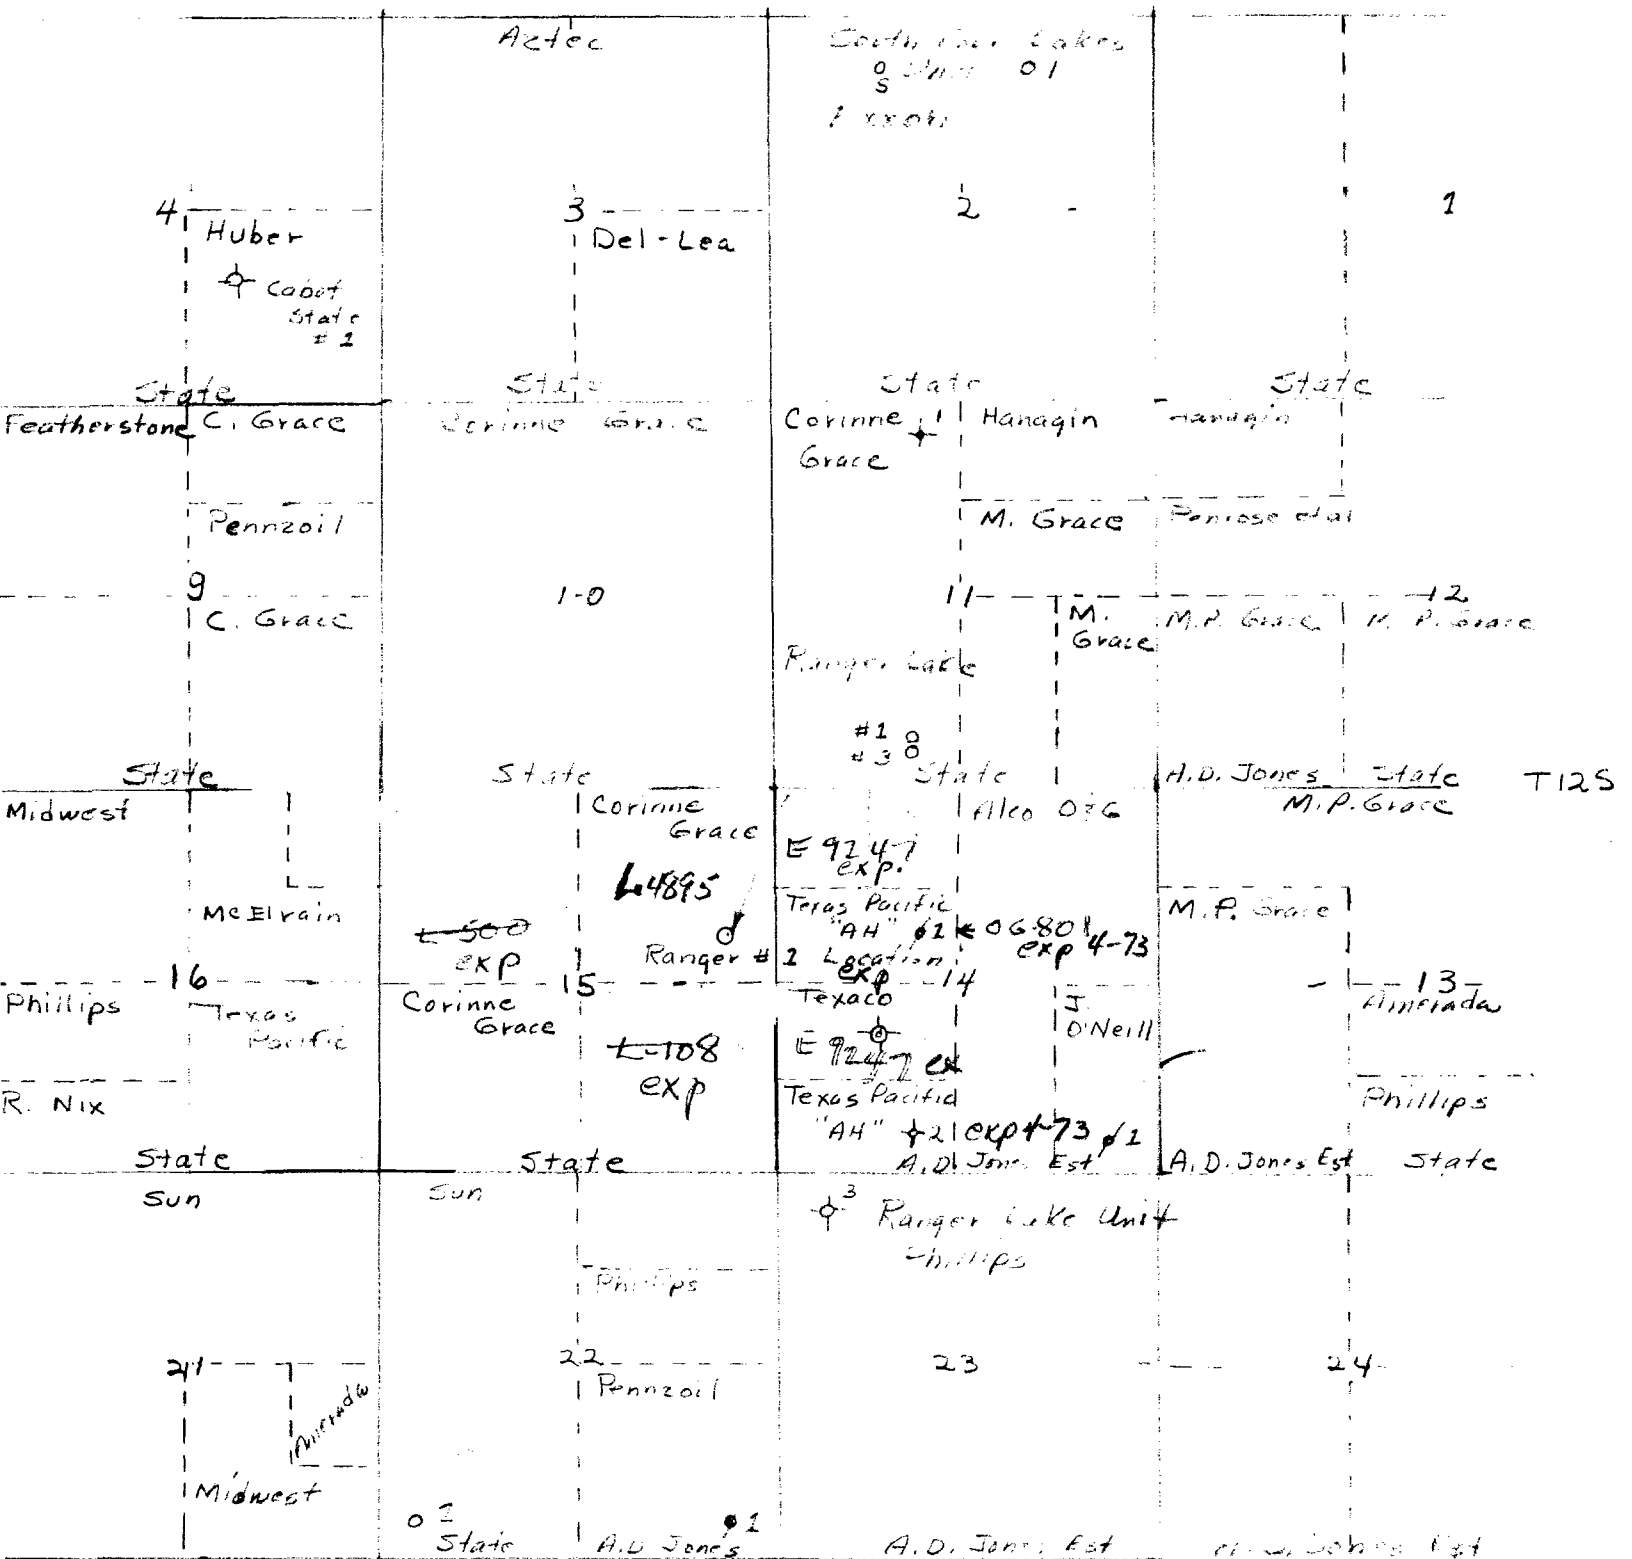 Aztec
Lakes
O 1
S
4
3
2
1
Huber
Del-Lea
Cabot
State
# 1
State
State
State
State
Featherstone
C. Grace
Corinne Grace
Corinne
Grace
1
Hanagin
Hanagin
Pennzoil
M. Grace
Penrose etal
9
10
11
12
C. Grace
M.
Grace
M.P. Grace
M. P. Grace
Ranger Lake
#1
#3
State
State
State
A.D. Jones
State
T12S
Midwest
Corinne
Grace
Alco O&G
M.P. Grace
E 9247
exp.
L4895
McElvain
Texas Pacific
M.P. Grace
"AH" 1
OG 801
exp 4-73
L-500
exp
Ranger # 1 Location
exp
16
15
14
13
Phillips
Texas
Pacific
Corinne
Grace
Texaco
J.
O'Neill
Amerada
L-108
exp
E 9247 ex
R. Nix
Texas Pacific
Phillips
"AH" 2 exp 4-73 1
State
State
A.D. Jones Est
A.D. Jones Est
State
Sun
Sun
3
Ranger Lake Unit
Phillips
Phillips
21
22
23
24
Pennzoil
Amerada
Midwest
State
1
A.D. Jones
A.D. Jones Est